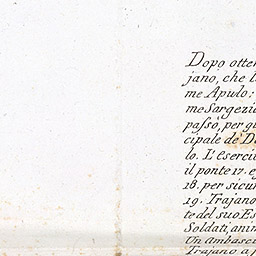 Dopo otten
jano, che l
me Apulo:
me Sargezia
passò, per qu
cipale de' Da
lo. L'Eserci
il ponte 17. e
18. per sicur
19. Trajano
te del suo Es
Soldati, anim
Un ambasci
Trajano a p